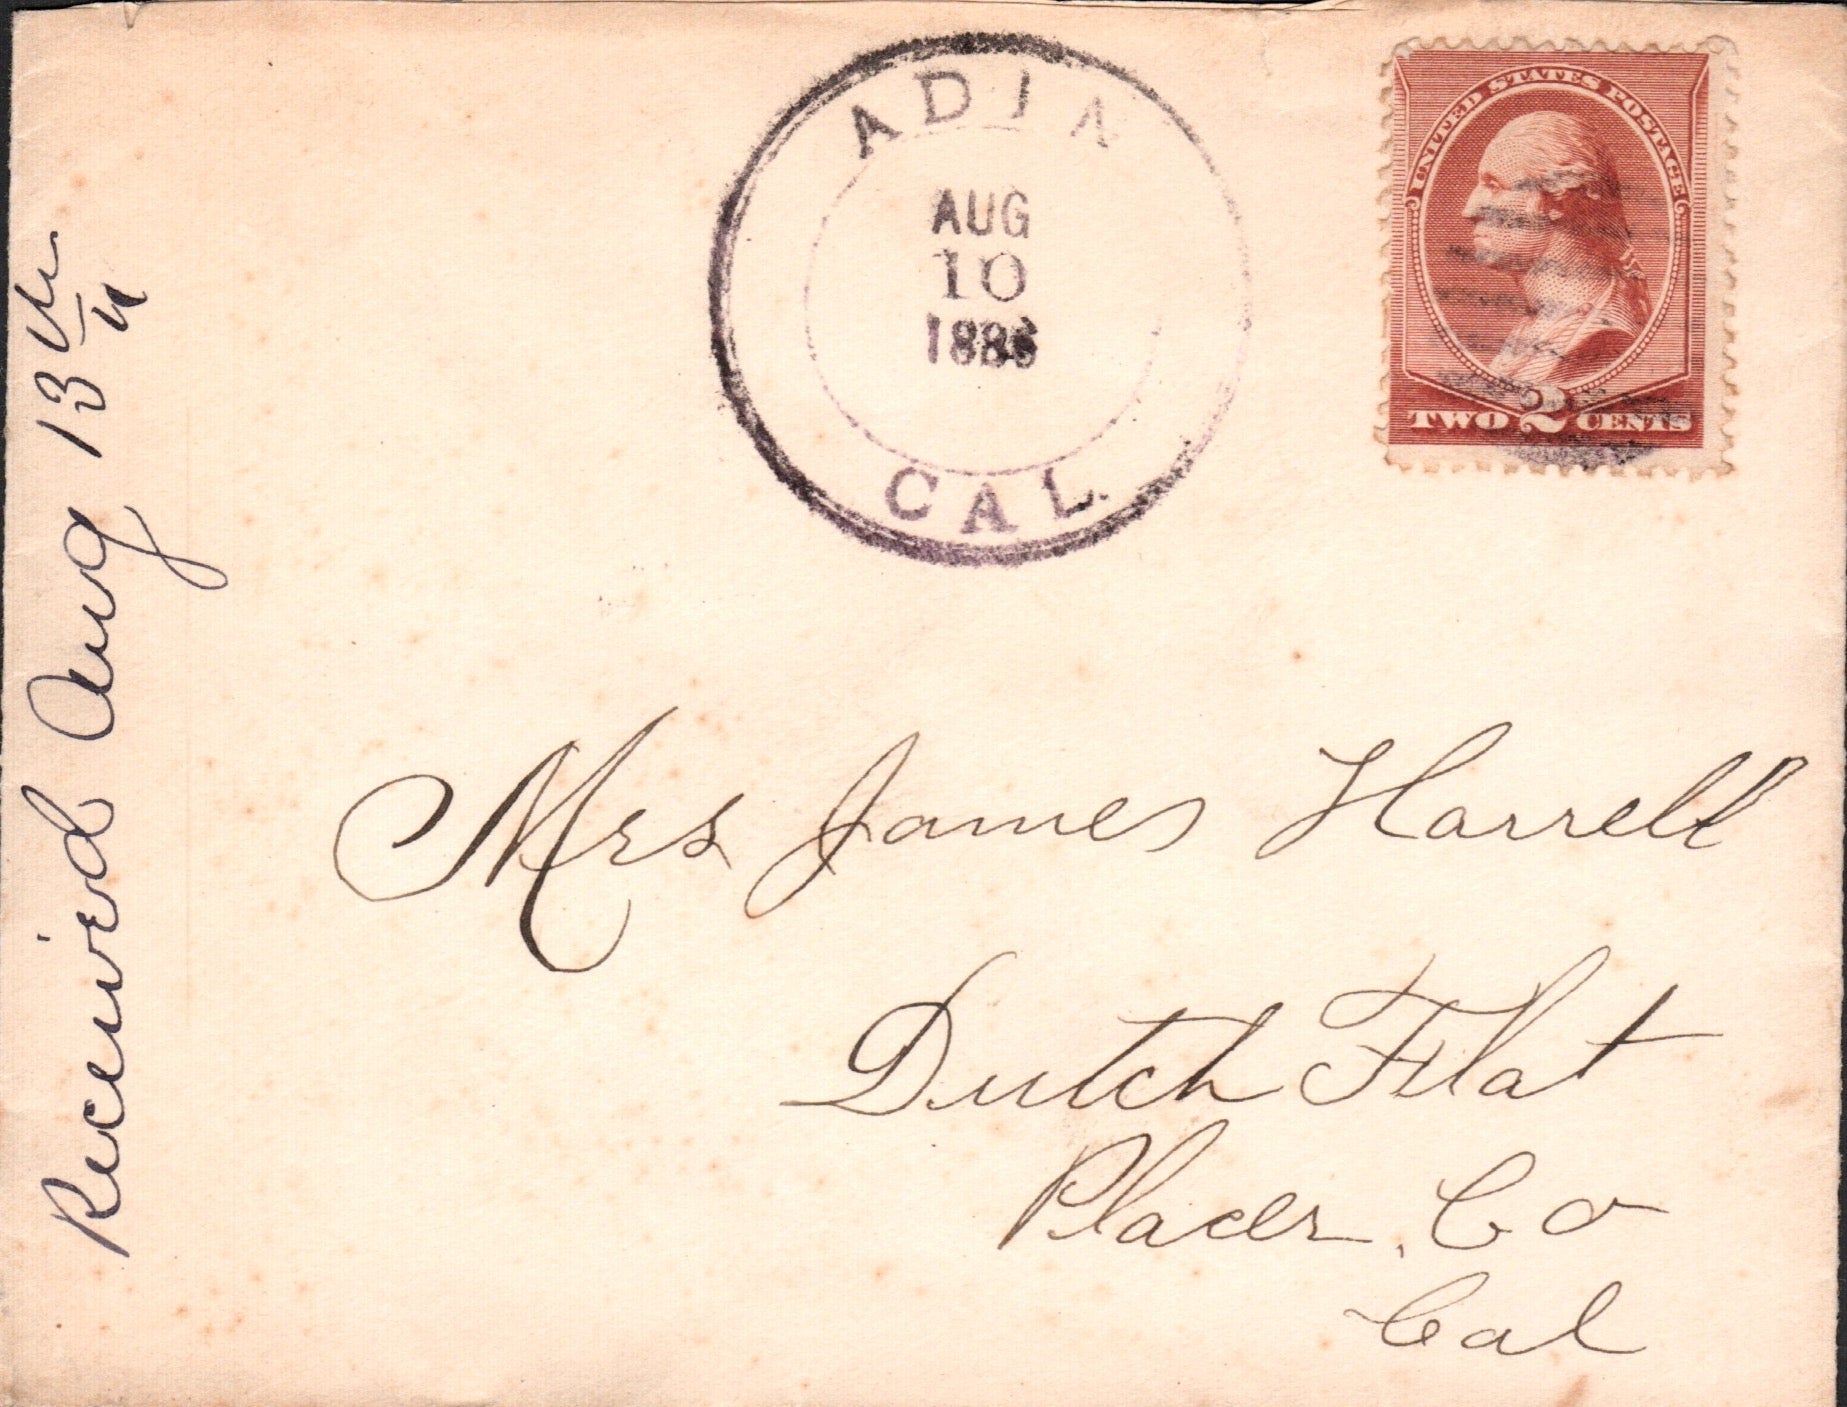 ADIN
AUG
10
1886
CAL.
UNITED STATES POSTAGE
TWO 2 CENTS
Received Aug 13th
Mrs James Harrell
Dutch Flat
Placer. Co
Cal